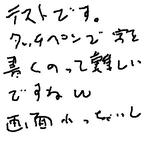 テストです。
タッチペンで字を
書くのって難しい
ですねw
画面小っちゃいし